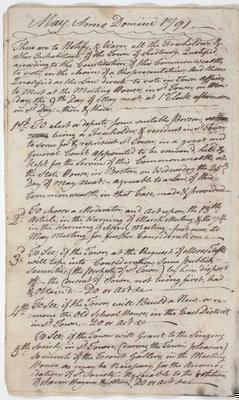 May. Anno Domini 1791.
These are to Notify & Warn all the Freeholders, &
other Inhabitants of the Town of Sudbury, Qualified
according to the Constitution of this Commonwealth
to vote in the choice of a Representative, and those
Qualified as the Law directs to vote in Town affairs
to Meet at the Meeting House, in sd Town, on Mon
day the 9th Day of May next at 1 Clock afternoon
sd Day, then & there
1st To elect & depute some suitable Person,
being a Freeholder & resident in sd Town
to serve for & represent sd Town in a great and
General Court appointed to be conven'd, held &
Kept for the Service of this Commonwealth at
the State House, in Boston, on Wednesday the 25th
Day of May next agreeable to a Law of this
Commonwealth in that Case, made & provided
2d To choose a Moderator and act upon the 13th
Article in the Warning of March Meeting & the 7th
in the Warning of April Meeting put over to
May Meeting for further Consideration
3d To See, if the Town at the Request of
will take into Consideration, some publick
Securities, (the property of sd Town)
off the Consent of Town, not being first, had
& Obtain'd. Do or Act &c
4th To See if the Town will Build a New or re-
move the Old School House, in the East District
in sd Town. Do or Act &c
5th To See, if the Town will Grant to the Singing
Society, in sd Town, (during the Town's pleasure)
So much of the Front Gallery, in the Meeting
House as may be Necessary for the Accomo-
dation of sd Society Agreeable to the
of Aaron Haynes & others, Do or Act &c